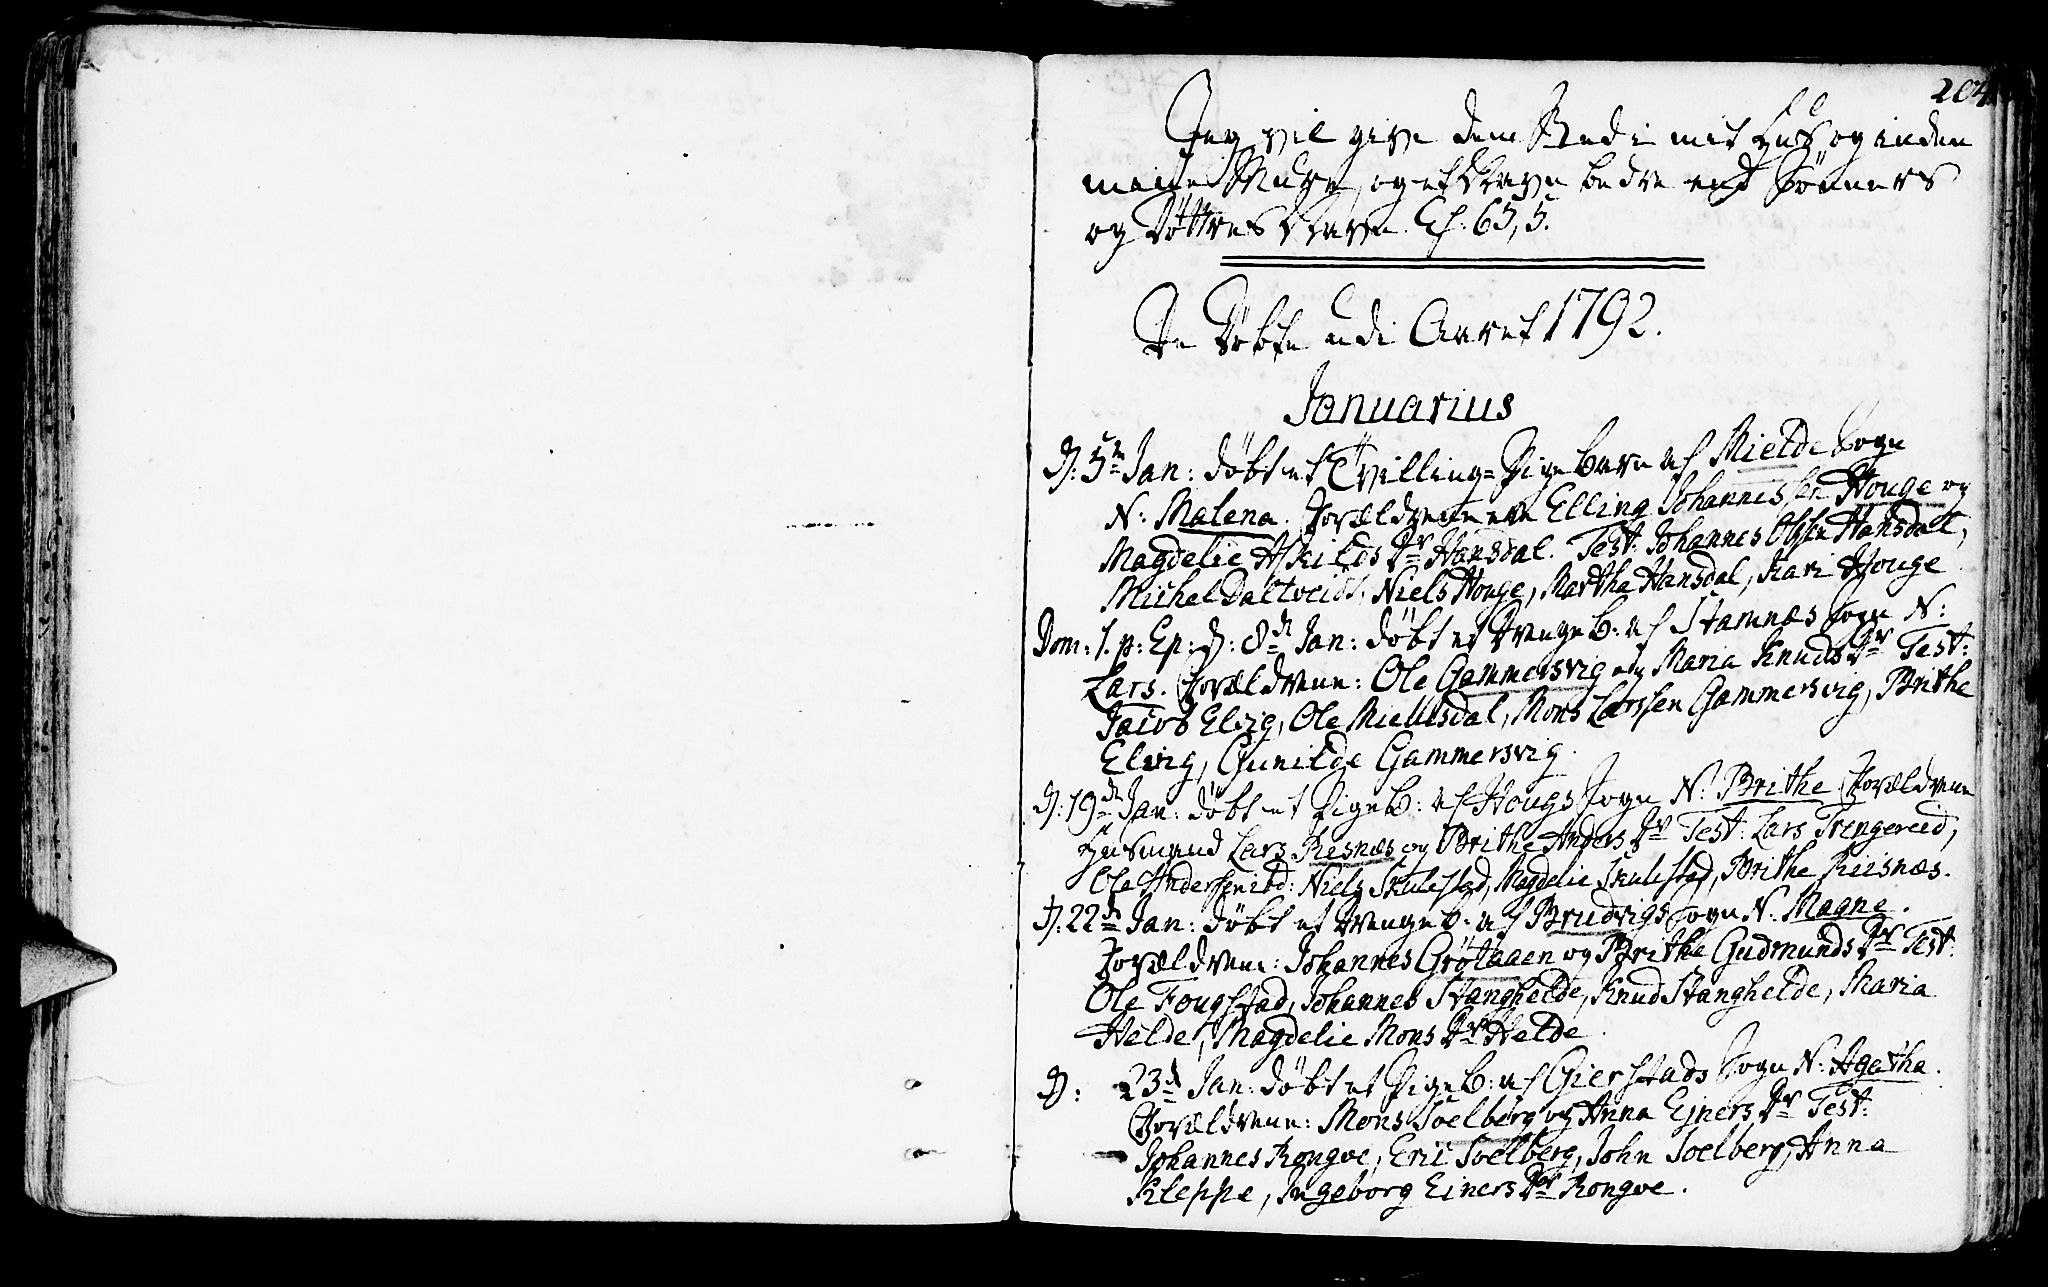 204
Jeg vil give dem Sted i mit Huus og inden
mine Mure, og et Navn bedre end Sönners
og Döttres Navn. Es. 65, 5.
De Döbte udi Aaret 1792.
Januarius
D: 5te Jan: döbt et Tvilling-Pige barn af Mielde Sogn
N: Malena. Forældrene ere Elling Johannessen Houge og
Magdelie Askilds Dr Hansdal. Test: Johannes Olsen Hansdal,
Michel Daltveidt, Niels Houge, Martha Hansdal, Kari Houge
Dom: 1. p: Ep: D: 8de Jan: döbt et Drenge b: af Stamnæs Sogn N:
Lars. Forældrene: Ole Gammersvig og Maria Knuds Dr Test:
Jacob Elvig, Ole Mielsdal, Mons Larssen Gammersvig, Brithe
Elvig, Gunilde Gammersvig.
D: 19de Jan: döbt et Pige b: af Hougs Sogn N: Brithe Forældrene
Huusmand Lars Resnæs og Brithe Anders Dr Test: Lars Trengereid,
Ole Andersen ibd: Niels Skulestad, Magdelie Skulestad, Brithe Reisnæs.
D: 22de Jan: döbt et Drenge b: af Brudvigs Sogn N: Magne.
Forældrene: Johannes Grötaaen og Brithe Gudmunds Dr Test:
Ole Fougstad, Johannes Stanghelde, Knud Stanghelde, Maria
Helde, Magdelie Mons Dr Helde.
D: 23de Jan: döbt et Pige b: af Gierstads Sogn N: Agatha.
Forældrene: Mons Soelberg og Anna Ejners Dr Test:
Johannes Rongve, Eric Soelberg, John Soelberg, Anna
Kleppe, Ingeborg Einers Dr Rongve.